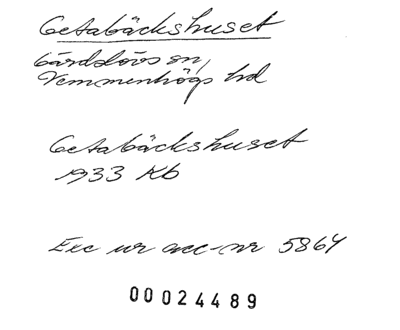 Getabäckshuset
Gärdslövs sn,
Vemmenhögs hd
Getabäckshuset
1933 Kb
Exc ur acc-nr 5864
00024489